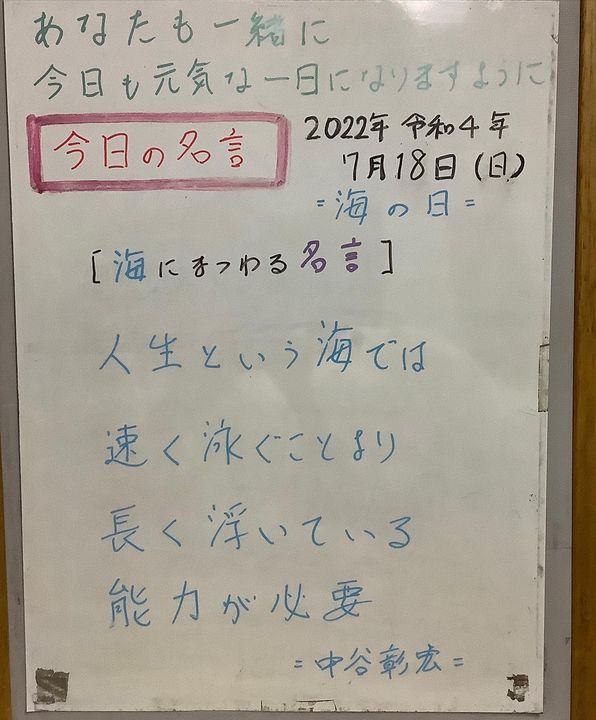 あなたも一緒に
今日も元気な一日になりますように
今日の名言
2022年 令和4年
7月18日(日)
=海の日=
[海にまつわる名言]
人生という海では
速く泳ぐことより
長く浮いている
能力が必要
=中谷彰宏=